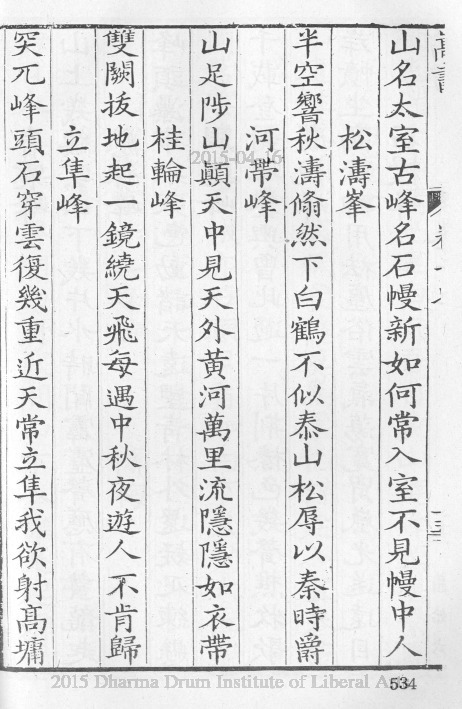 山名太室古峰名石幔新如何常入室不見幔中人
松濤峯
半空響秋濤翛然下白鶴不似泰山松辱以秦時爵
河帶峰
山足陟山顛天中見天外黃河萬里流隱隱如衣帶
桂輪峰
雙闕拔地起一鏡繞天飛每遇中秋夜遊人不肯歸
立隼峰
突兀峰頭石穿雲復幾重近天常立隼我欲射高墉
2015-04-16
2015 Dharma Drum Institute of Liberal Arts
534